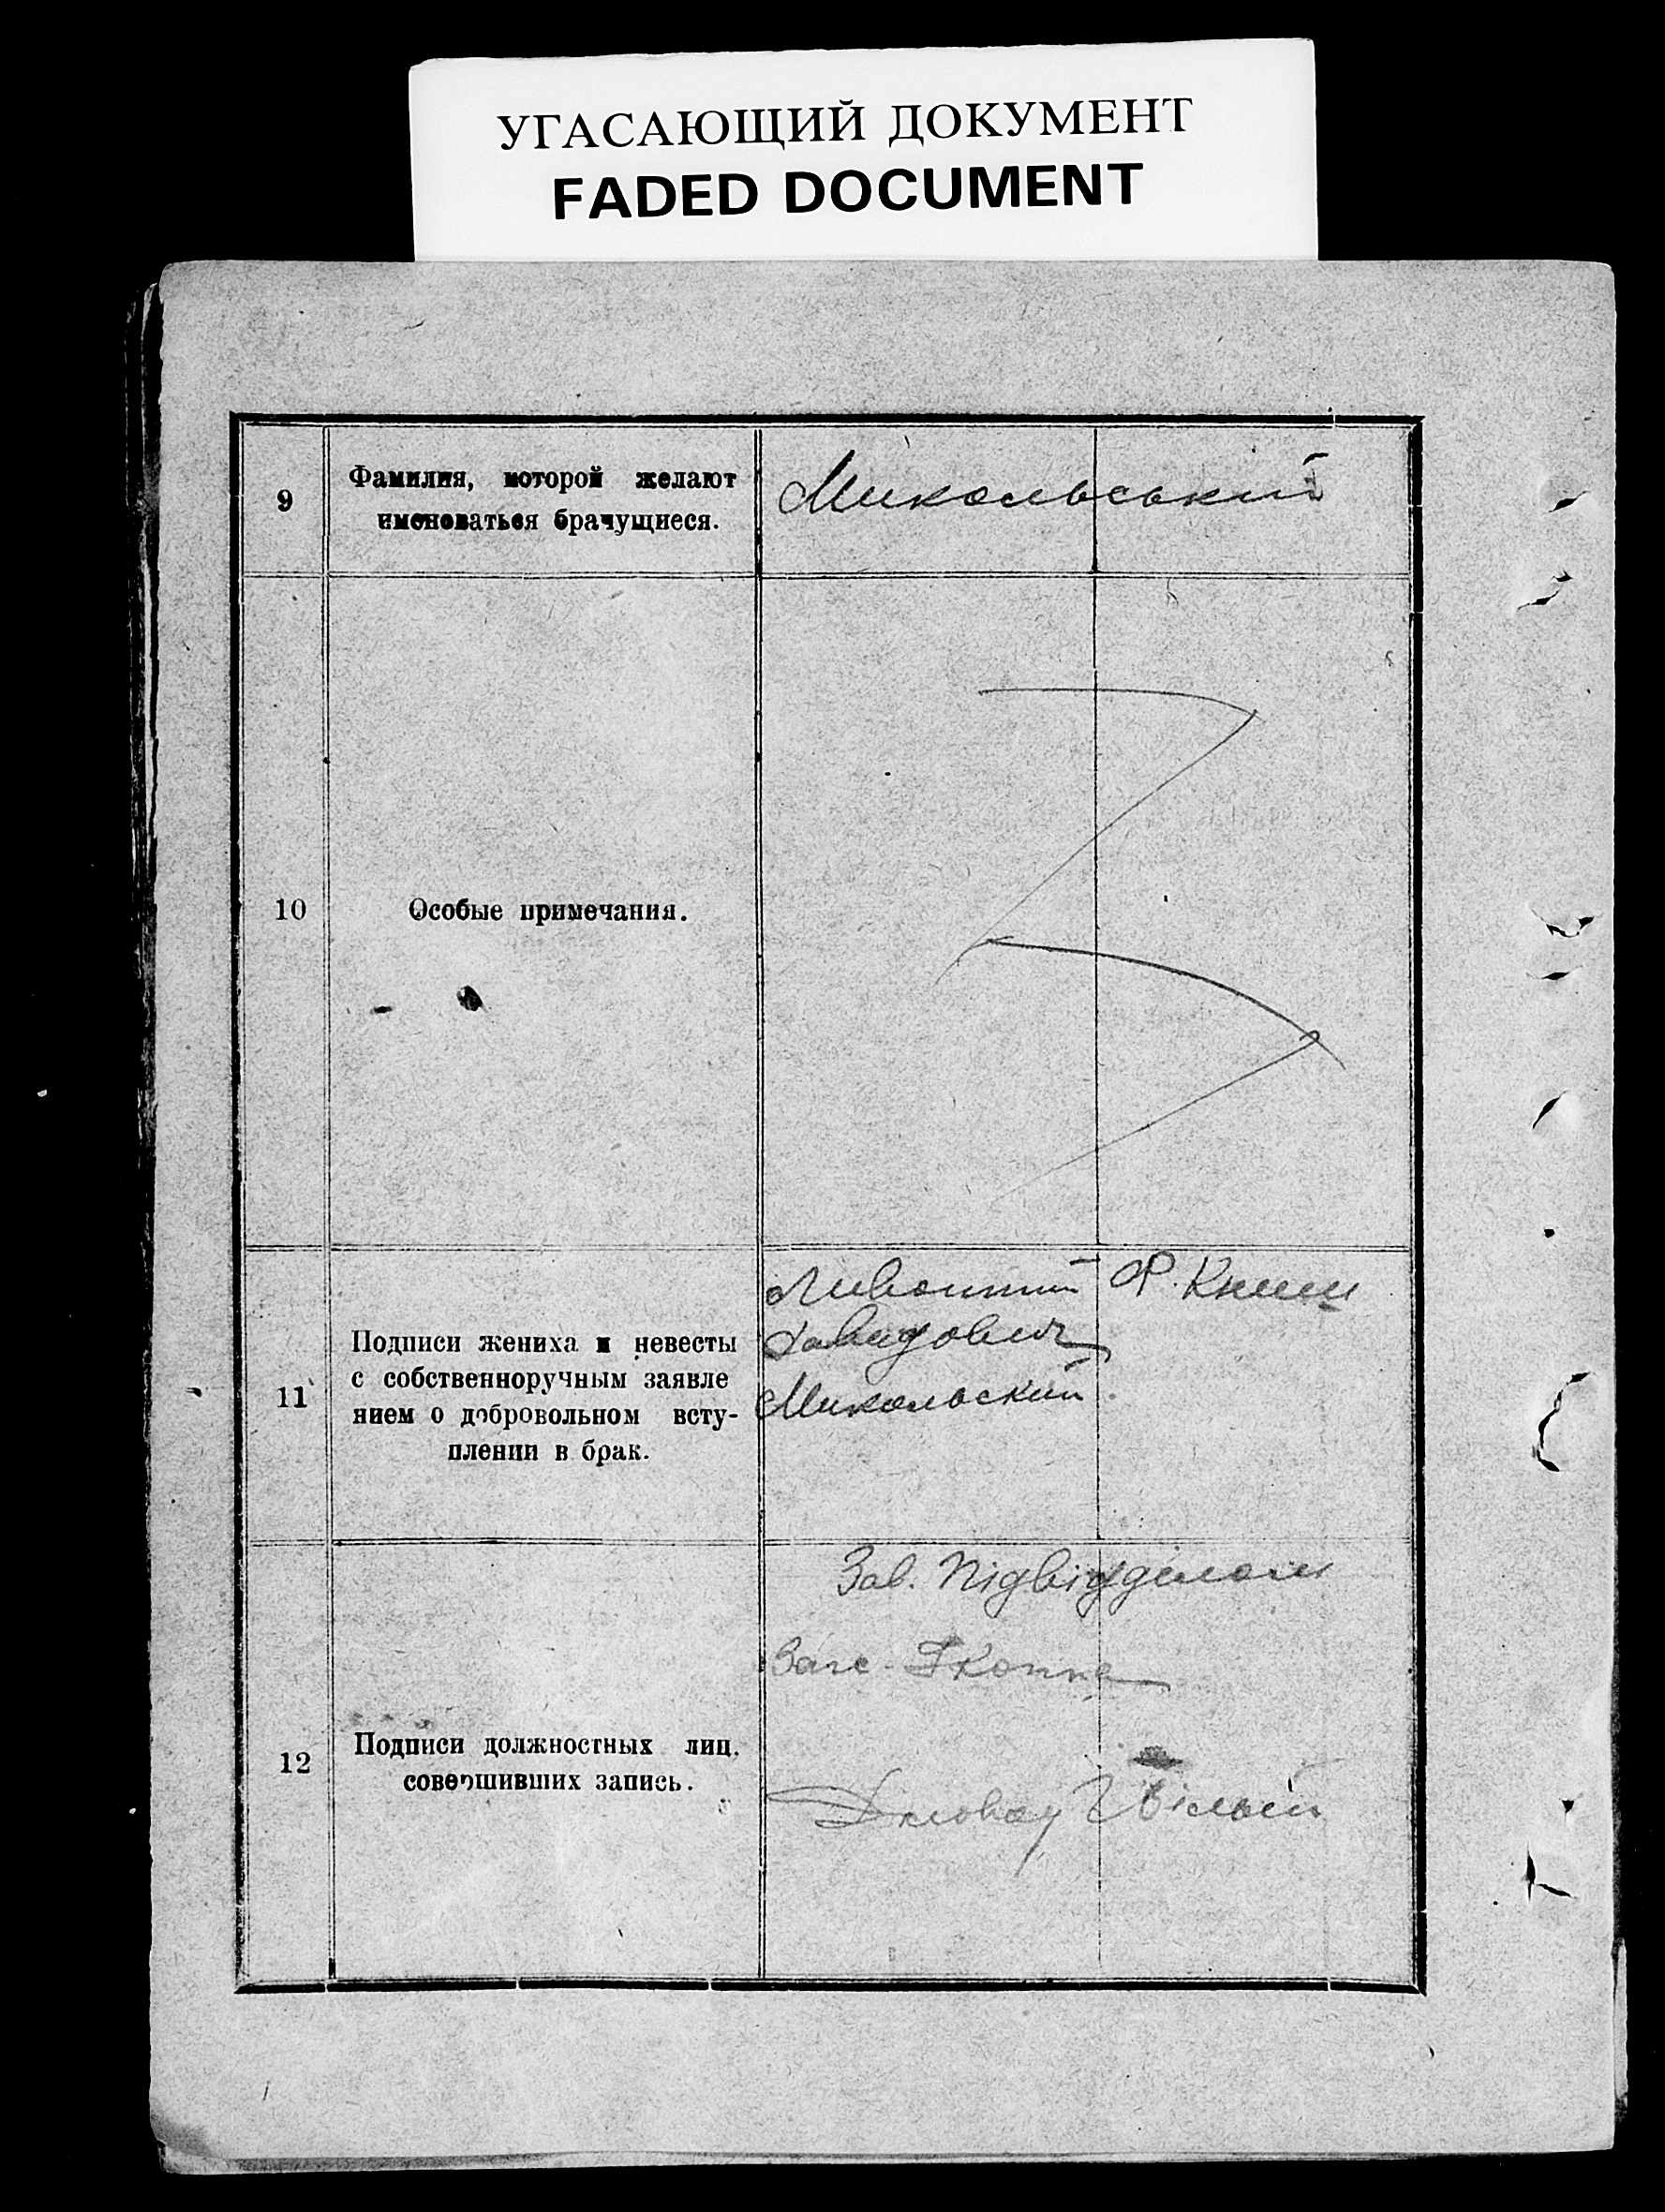 УГАСАЮЩИЙ ДОКУМЕНТ
FADED DOCUMENT
9
Фамилия, которой желают
именоваться брачущиеся.
Микольський
10
Особые примечания.
11
Подписи жениха и невесты
с собственноручным заявле
нием о добровольном всту-
плении в брак.
Давидович
Микольский
Ф. Книш
12
Подписи должностных лиц.
совершивших запись.
Зав. Підвідділом
Загс